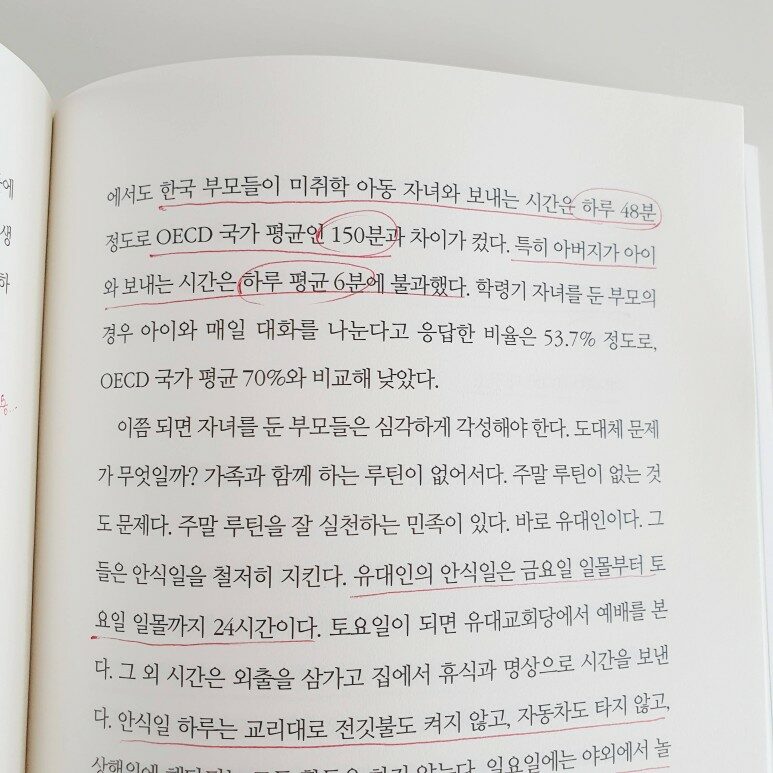 에서도 한국 부모들이 미취학 아동 자녀와 보내는 시간은 하루 48분
정도로 OECD 국가 평균인 150분과 차이가 컸다. 특히 아버지가 아이
와 보내는 시간은 하루 평균 6분에 불과했다. 학령기 자녀를 둔 부모의
경우 아이와 매일 대화를 나눈다고 응답한 비율은 53.7% 정도로,
OECD 국가 평균 70%와 비교해 낮았다.
이쯤 되면 자녀를 둔 부모들은 심각하게 각성해야 한다. 도대체 문제
가 무엇일까? 가족과 함께 하는 루틴이 없어서다. 주말 루틴이 없는 것
도 문제다. 주말 루틴을 잘 실천하는 민족이 있다. 바로 유대인이다. 그
들은 안식일을 철저히 지킨다. 유대인의 안식일은 금요일 일몰부터 토
요일 일몰까지 24시간이다. 토요일이 되면 유대교회당에서 예배를 본
다. 그 외 시간은 외출을 삼가고 집에서 휴식과 명상으로 시간을 보낸
다. 안식일 하루는 교리대로 전깃불도 켜지 않고, 자동차도 타지 않고,
하지 않는다. 일요일에는 야외에서 놀